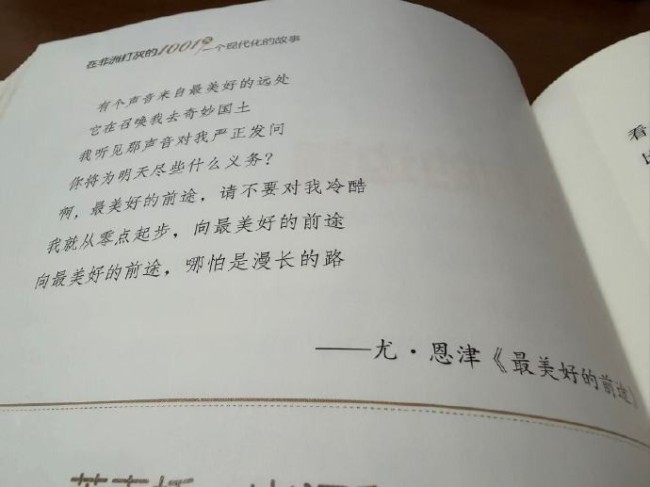 在非洲打灰的1001夜 一个现代化的故事
有个声音来自最美好的远处
它在召唤我去奇妙国土
我听见那声音对我严正发问
你将为明天尽些什么义务？
啊，最美好的前途，请不要对我冷酷
我就从零点起步，向最美好的前途
向最美好的前途，哪怕是漫长的路
——尤·恩津《最美好的前途》
看